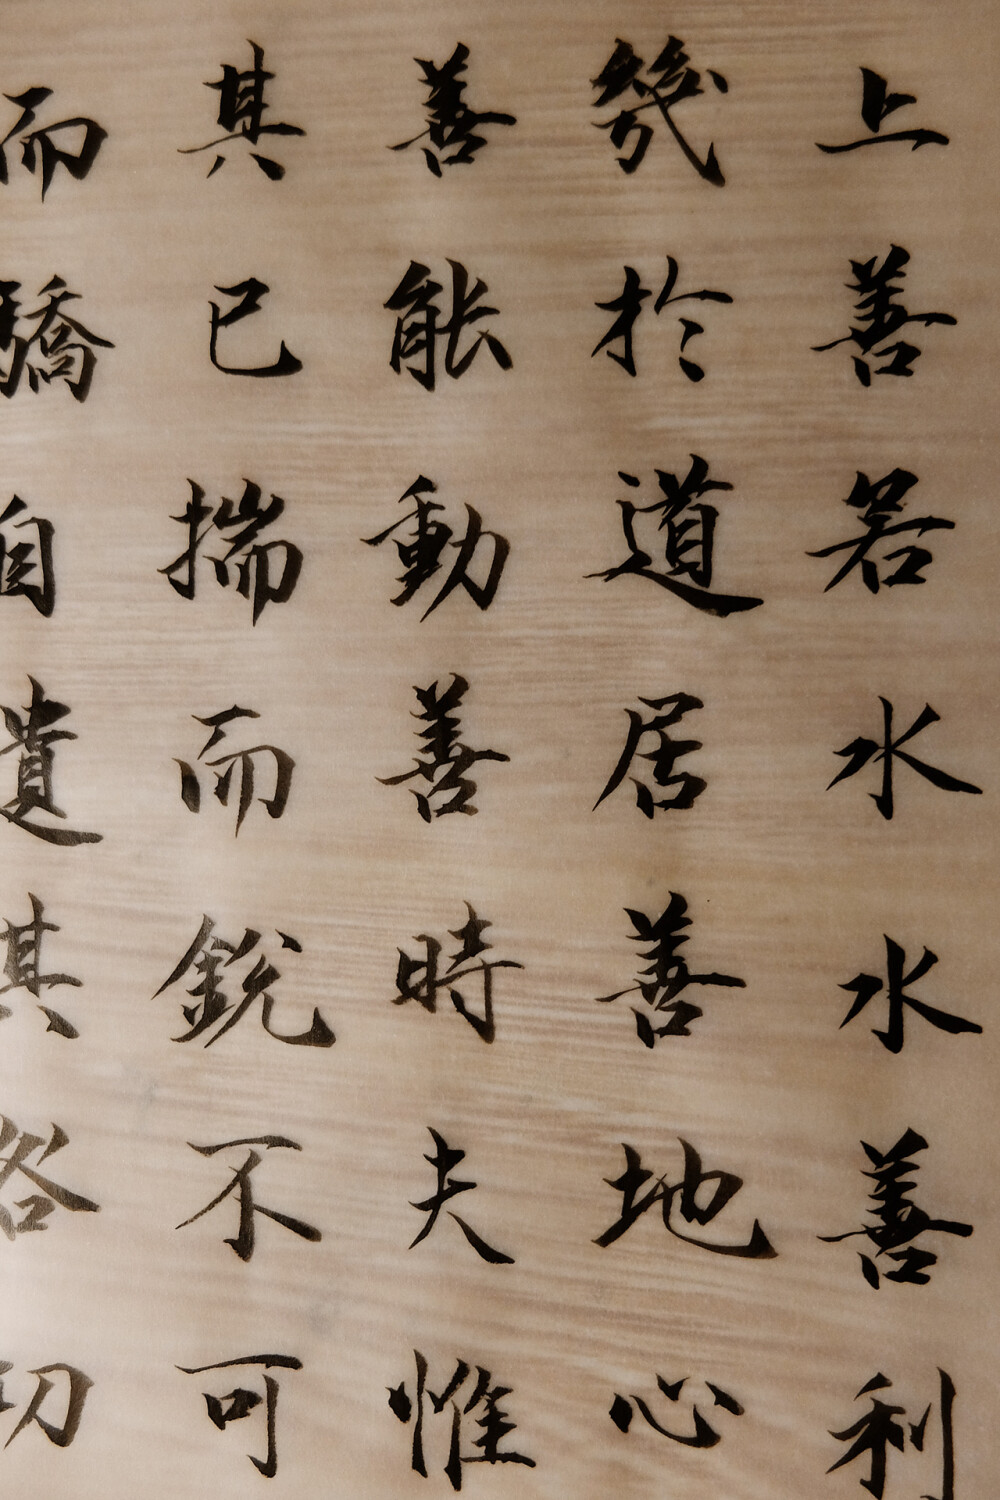 上善若水水善利
幾於道居善地心
善能動善時夫惟
其已揣而銳不可
而驕自遺其咎功